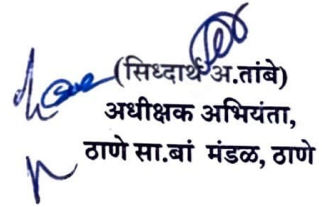 (सिध्दार्थ अ.तांबे)
अधीक्षक अभियंता,
ठाणे सा.बां मंडळ, ठाणे